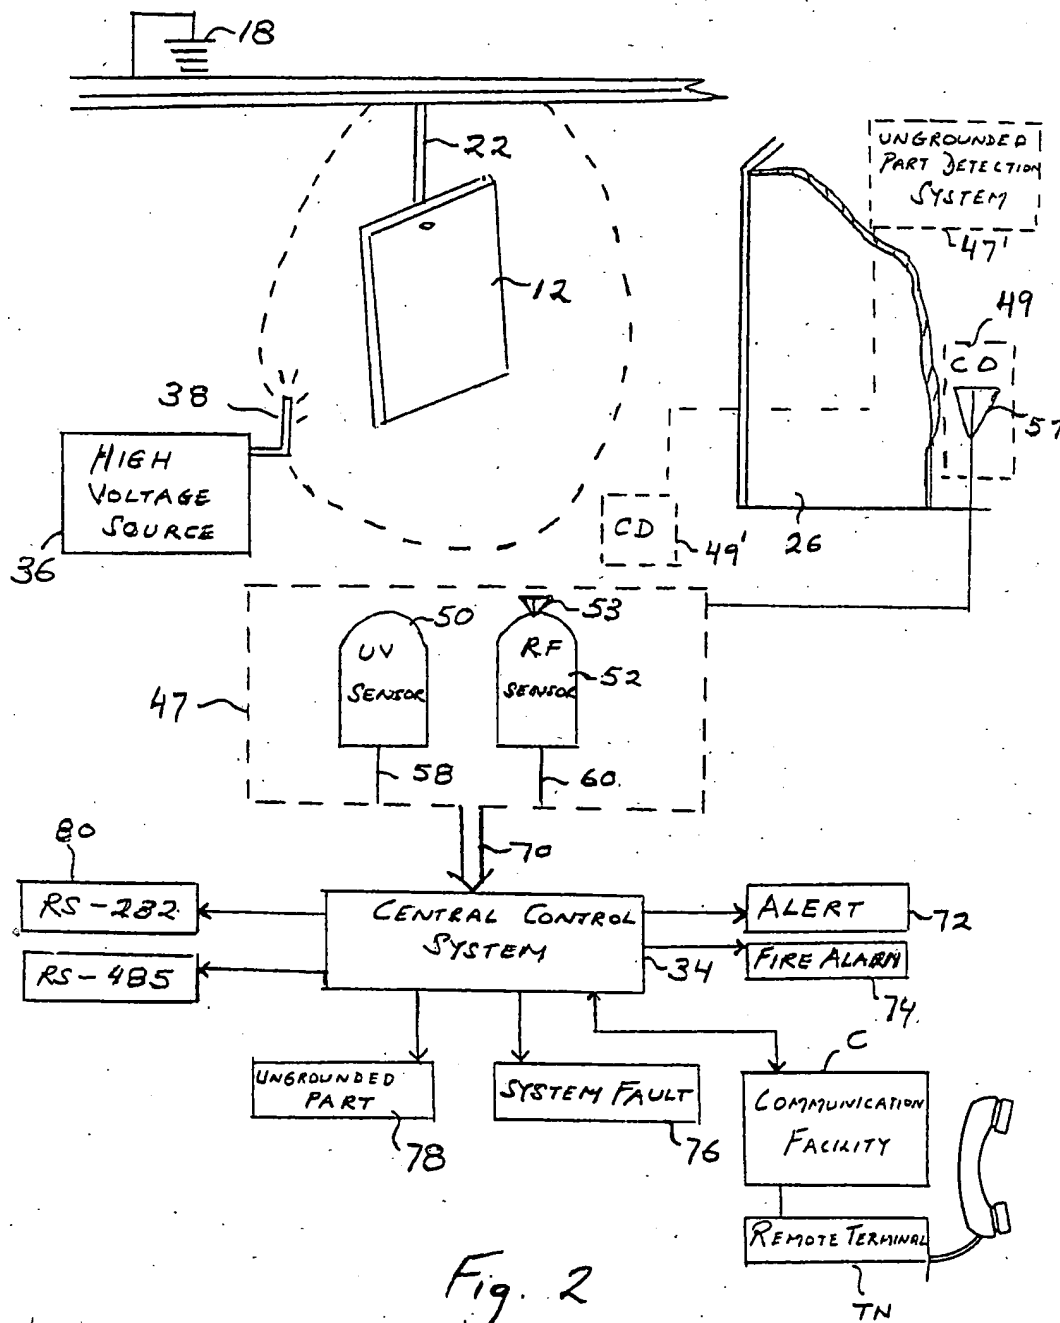 18
22
UNGROUNDED
PART DETECTION
SYSTEM
47'
12
49
CD
57
38
HIGH
VOLTAGE
SOURCE
36
CD
49'
26
53
50
UV
SENSOR
RF
SENSOR
52
47
58
60
70
80
RS-232
RS-485
CENTRAL CONTROL
SYSTEM
34
ALERT
72
FIRE ALARM
74
UNGROUNDED
PART
78
SYSTEM FAULT
76
C
COMMUNICATION
FACILITY
REMOTE TERMINAL
TN
Fig. 2